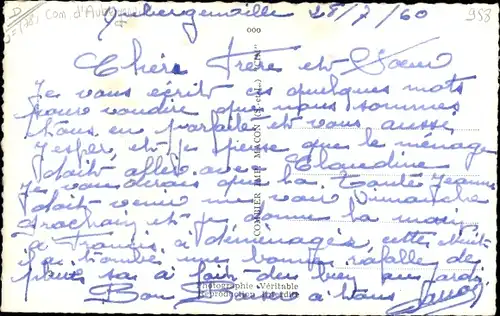 Aubergenville 28/7/60
958
Chère Frère et Soeur
Je vous écrit ces quelques mots
pour vous dire que nous sommes
tous en parfaite et vous aussi
j'esper, et je pense que le ménage
doit aller avec Claudine
Je vous dirais que la Tante Jeanne
doit venir me voir Dimanche
prochain et je donne la main
a Francis a déménager, cette nuit
il a tombé une bonne rafalle de
pluie sa a fait du bien au jardin
Bon a tous
COMBIER IMP. MACON (S.-et-L.) "CIM"
Photographie Véritable
Reproduction Interdite